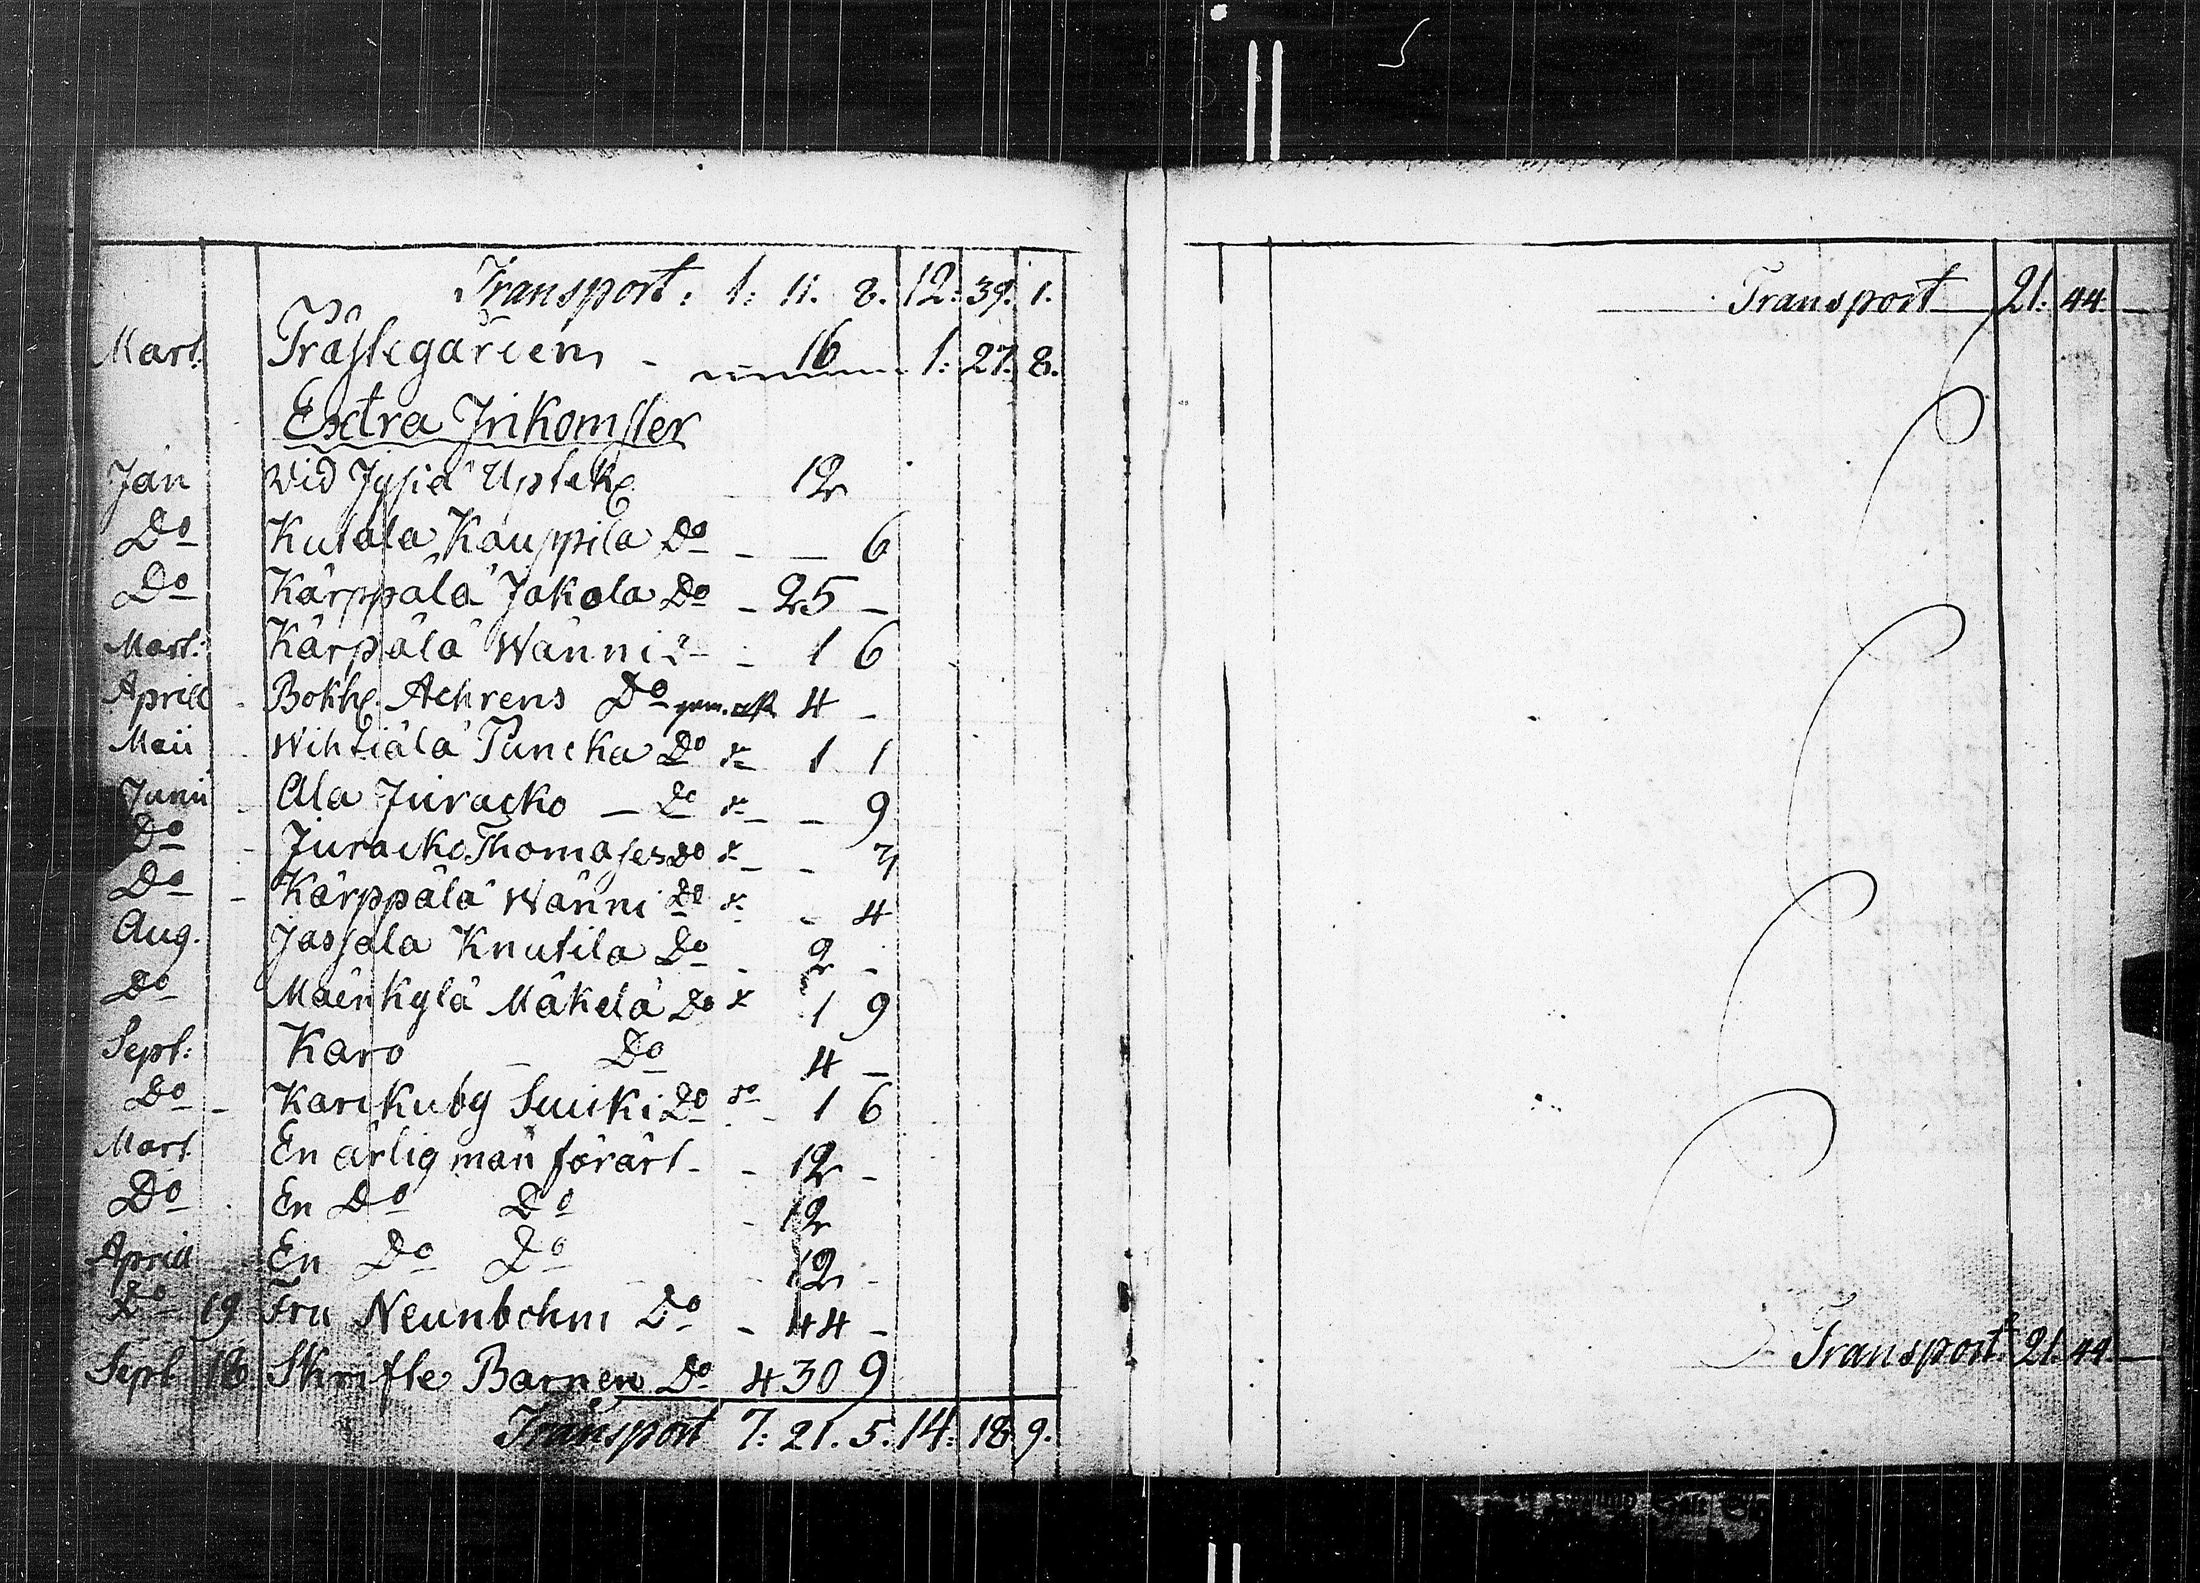 Transport: 1: 11. 8. 12: 39. 1.
Mart. Prästegården - 16 1: 27. 8.
Extra Inkomster
Jan Wid Jysiä Upteke 12
Do Kutala Kauppila Do - - 6
Do Kärppälä Jakola Do - 25 -
Mart: Kärpälä Wänni Do - 1 6
Aprill - Bokh. Achrens Do 4 -
Maii - Wihtiälä Tuncka Do 1 1
Junii - Ala Juracko - Do - 9
Do - Juracko Thomases Do - 7
Do - Kärppälä Wänni Do - 4
Aug. Jassala Knutila Do - 2 -
Do Mäenkylä Mäkelä Do 1 9
Sept: Karo - Do 4 -
Do - Karckuby Suiki Do - 1 6
Mart En ärlig man förärt - - 12 -
Do En Do Do - 12
Aprill En Do Do - 12 -
Do 19 Fru Neunbohm Do - 44 -
Sept 18 Skrifte Barnen Do 4 30 9
Transport 7: 21. 5. 14: 18 9.
Transport 21. 44. -
Transport 21. 44. -